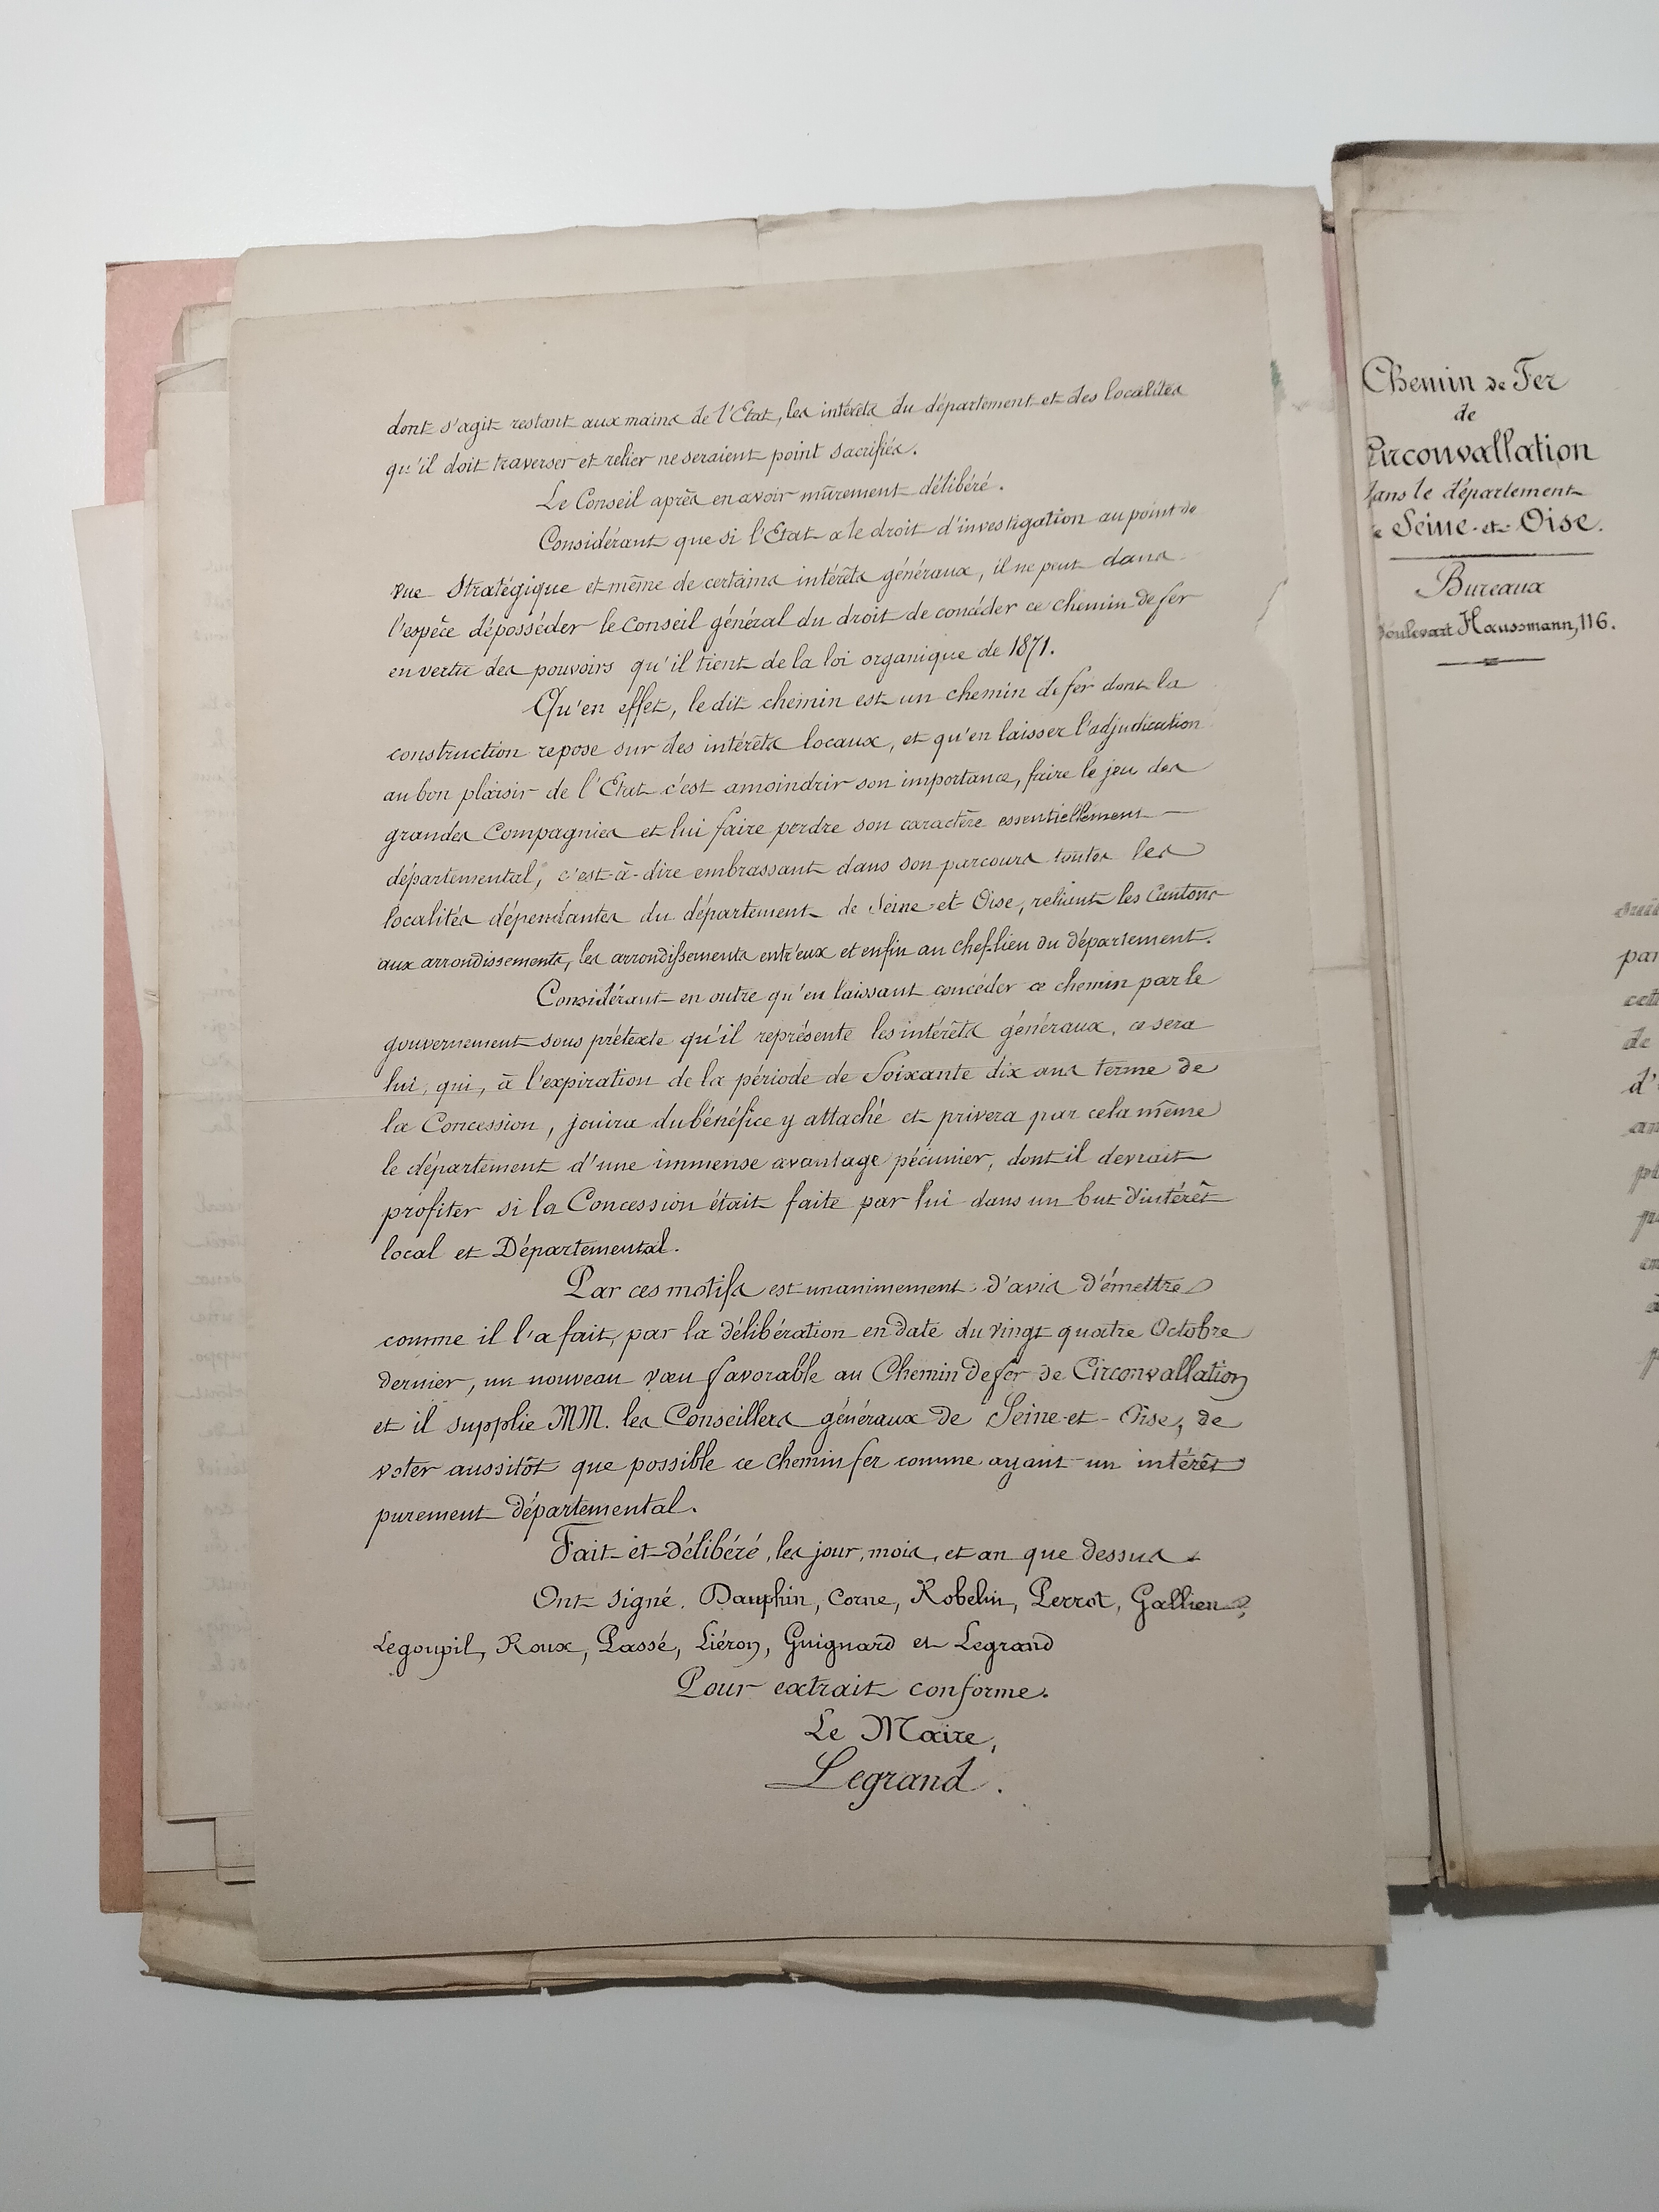 dont s'agit restant aux mains de l'Etat, les intérêts du département et des localités
qu'il doit traverser et relier ne seraient point sacrifiés.
Le Conseil après en avoir mûrement délibéré.
Considérant que si l'Etat a le droit d'investigation au point de
vue Stratégique et même de certains intérêts généraux, il ne peut dans
l'espèce déposséder le Conseil général du droit de concéder ce chemin de fer
en vertu des pouvoirs qu'il tient de la loi organique de 1871.
Qu'en effet, le dit chemin est un chemin de fer dont la
construction repose sur des intérêts locaux, et qu'en laisser l'adjudication
au bon plaisir de l'Etat c'est amoindrir son importance, faire le jeu des
grandes Compagnies et lui faire perdre son caractère essentiellement
départemental, c'est-à-dire embrassant dans son parcours toutes les
localités dépendantes du département de Seine-et-Oise, reliant les Cantons
aux arrondissements, les arrondissements entr'eux et enfin au chef-lieu du département.
Considérant en outre qu'en laissant concéder ce chemin par le
gouvernement sous prétexte qu'il représente les intérêts généraux, ce sera
lui, qui, à l'expiration de la période de Soixante dix ans terme de
la Concession, jouira du bénéfice y attaché et privera par cela même
le département d'une immense avantage pécunier, dont il devrait
profiter si la Concession était faite par lui dans un but d'intérêt
local et Départemental.
Par ces motifs est unanimement d'avis d'émettre
comme il l'a fait, par la délibération en date du vingt quatre Octobre
dernier, un nouveau vœu favorable au Chemin de fer de Circonvallation
et il supplie MM. les Conseillers généraux de Seine-et-Oise, de
voter aussitôt que possible ce chemin fer comme ayant un intérêt
purement départemental.
Fait et délibéré, les jour, mois, et an que dessus
Ont signé. Dauphin, Corne, Robelin, Perrot, Gallien
Legoupil, Roux, Passé, Liéron, Guignard et Legrand
Pour extrait conforme.
Le Maire,
Legrand.
Chemin de Fer
de
Circonvallation
dans le département
de Seine-et-Oise.
Bureaux
Boulevart Haussmann, 116.
par
de
d'